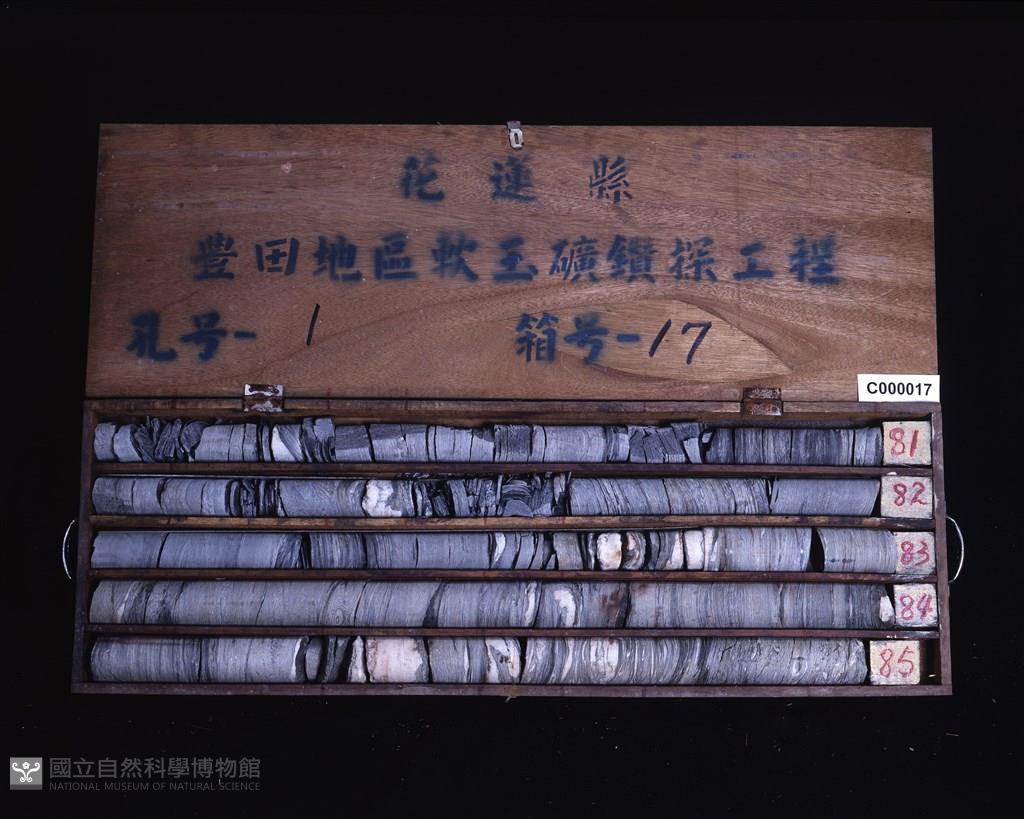 花蓮縣
豐田地區軟玉礦鑽探工程
孔号-1 箱号-17
C000017
81
82
83
84
85
國立自然科學博物館
NATIONAL MUSEUM OF NATURAL SCIENCE